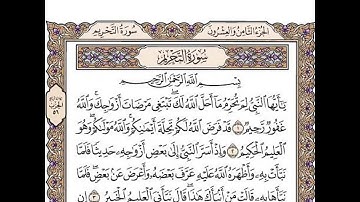 الجُزْءُ الثَّامِنُ وَالعِشْرُونَ سُورَةُ التَّحْرِيمِ
سُورَةُ التَّحْرِيمِ
بِسْمِ ٱللَّهِ ٱلرَّحْمَٰنِ ٱلرَّحِيمِ
يَٰٓأَيُّهَا ٱلنَّبِىُّ لِمَ تُحَرِّمُ مَآ أَحَلَّ ٱللَّهُ لَكَ ۖ تَبْتَغِى مَرْضَاتَ أَزْوَٰجِكَ ۚ وَٱللَّهُ
غَفُورٌ رَّحِيمٌ ١ قَدْ فَرَضَ ٱللَّهُ لَكُمْ تَحِلَّةَ أَيْمَٰنِكُمْ ۚ وَٱللَّهُ مَوْلَىٰكُمْ ۖ وَهُوَ
ٱلْعَلِيمُ ٱلْحَكِيمُ ٢ وَإِذْ أَسَرَّ ٱلنَّبِىُّ إِلَىٰ بَعْضِ أَزْوَٰجِهِۦ حَدِيثًا فَلَمَّا
نَبَّأَتْ بِهِۦ وَأَظْهَرَهُ ٱللَّهُ عَلَيْهِ عَرَّفَ بَعْضَهُۥ وَأَعْرَضَ عَنۢ بَعْضٍ ۖ فَلَمَّا
نَبَّأَهَا بِهِۦ قَالَتْ مَنْ أَنۢبَأَكَ هَٰذَا ۖ قَالَ نَبَّأَنِىَ ٱلْعَلِيمُ ٱلْخَبِيرُ ٣ إِن
الحزب
٥٦